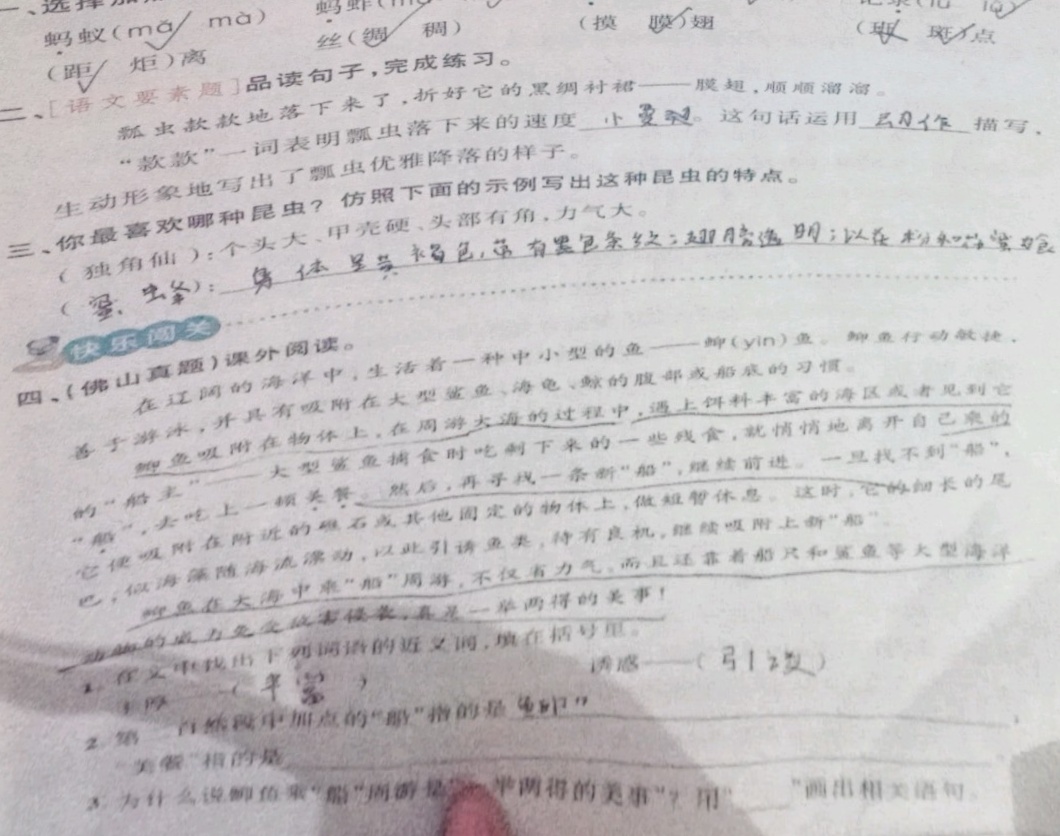 一、选择
蚂蚁(mǎ mà) 蚂蚱(m 记录(lù
(距 炬)离 丝(绸 稠) (摸 膜)翅 (斑)点
二、[语文要素题]品读句子,完成练习。
瓢虫款款地落下来了,折好它的黑绸衬裙——膜翅,顺顺溜溜。
“款款”一词表明瓢虫落下来的速度 。这句话运用 作 描写,
生动形象地写出了瓢虫优雅降落的样子。
三、你最喜欢哪种昆虫?仿照下面的示例写出这种昆虫的特点。
(独角仙):个头大、甲壳硬、头部有角,力气大。
(蜜 ): 身体呈黄褐色,带有黑色条纹;翅膀透明;以花粉和 为食
快乐闯关
四、(佛山真题)课外阅读。
在辽阔的海洋中,生活着一种中小型的鱼——䲟(yìn)鱼。䲟鱼行动敏捷,
善于游泳,并具有吸附在大型鲨鱼、海龟、鲸的腹部或船底的习惯。
䲟鱼吸附在物体上,在周游大海的过程中,遇上饵料丰富的海区或者见到它
的“船主”——大型鲨鱼捕食时吃剩下来的一些残食,就悄悄地离开自己乘的
“船”,去吃上一顿美餐。然后,再寻找一条新“船”,继续前进。一旦找不到“船”,
它便吸附在附近的礁石或其他固定的物体上,做短暂休息。这时,它的细长的尾
巴,似海藻随海流漂动,以此引诱鱼类,待有良机,继续吸附上新“船”。
䲟鱼在大海中乘“船”周游,不仅省力气,而且还靠着船只和鲨鱼等大型海洋
动物的威力免受敌害侵袭,真是一举两得的美事!
1. 在文中找出下列词语的近义词,填在括号里。
丰厚——( 丰富 ) 诱惑——( 引 )
2. 第 自然段中加点的“船”指的是
“美餐”指的是
3. 为什么说䲟鱼乘“船”周游是“一举两得的美事”?用“ ”画出相关语句。